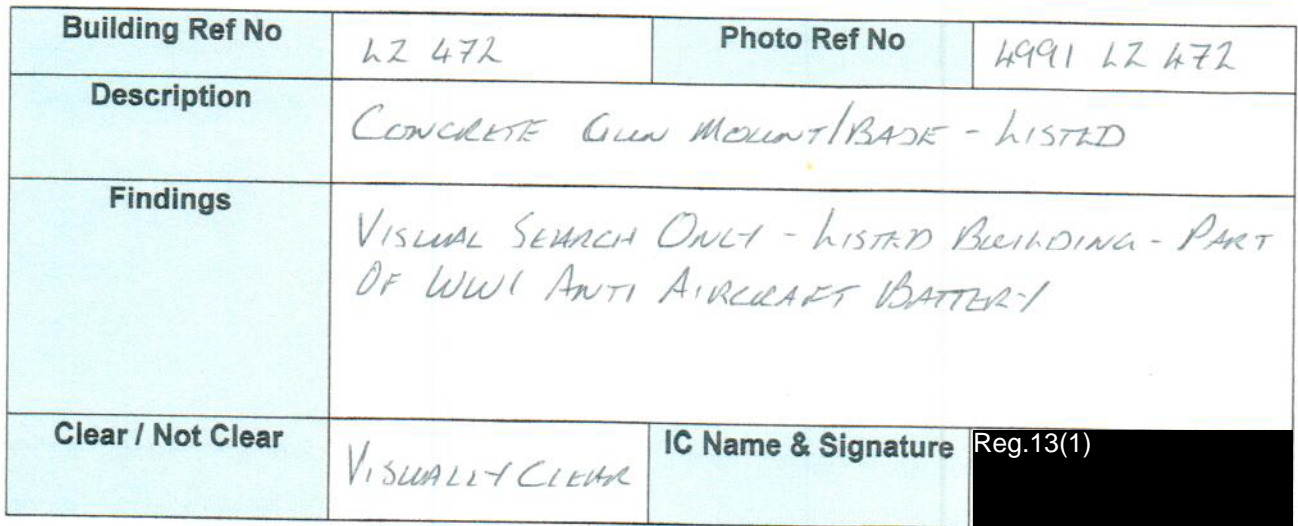 Building Ref No LZ 472 Photo Ref No 4991 LZ 472
Description CONCRETE GUN MOUNT/BASE - LISTED
Findings VISUAL SEARCH ONLY - LISTED BUILDING - PART
OF WW1 ANTI AIRCRAFT BATTERY
Clear / Not Clear VISUALLY CLEAR IC Name & Signature Reg.13(1)